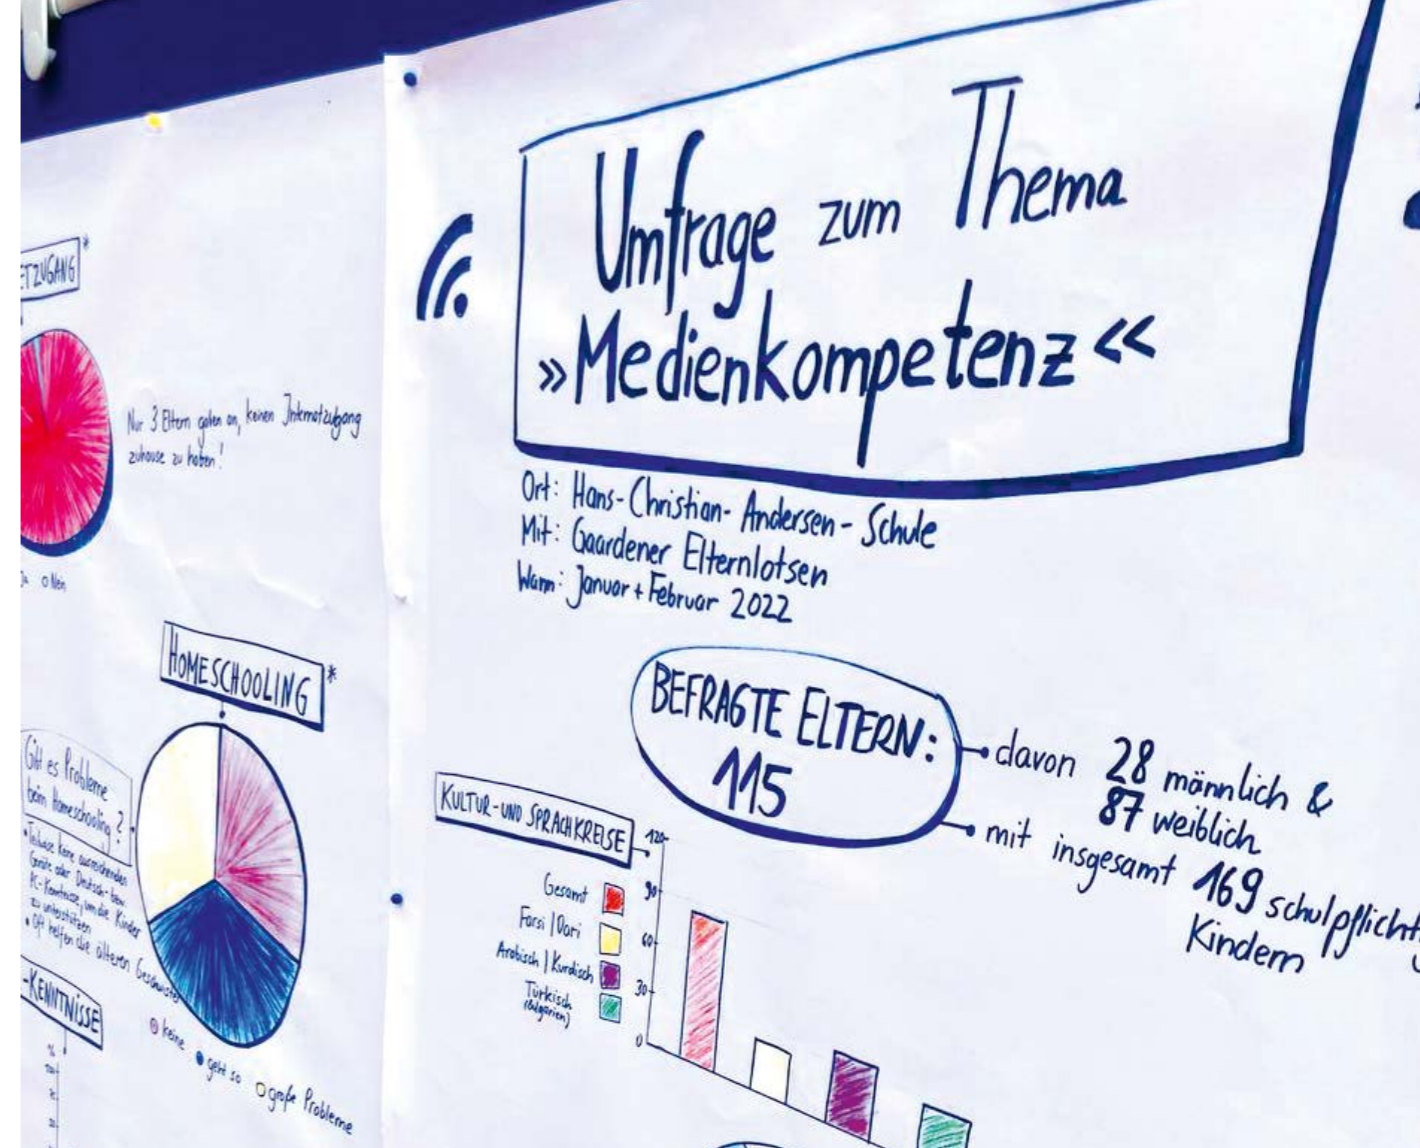 ETZUGANG*
Nur 3 Eltern gaben an, keinen Internetzugang
zuhause zu haben!
Ja o Nein
HOMESCHOOLING*
Gibt es Probleme
beim Homeschooling?
• Teilweise keine ausreichenden
Geräte oder Deutsch- bzw.
PC-Kenntnisse, um die Kinder
zu unterstützen
• Oft helfen die älteren Geschwister
keine geht so große Probleme
-KENNTNISSE
%
Umfrage zum Thema
»Medienkompetenz«
Ort: Hans-Christian-Andersen-Schule
Mit: Gaardener Elternlotsen
Wann: Januar + Februar 2022
BEFRAGTE ELTERN:
115
davon 28 männlich &
87 weiblich
mit insgesamt 169 schulpflichtig
Kindern
KULTUR- UND SPRACHKREISE
Gesamt
Farsi | Dari
Arabisch | Kurdisch
Türkisch
(Bulgarien)
120
90
60
30
0